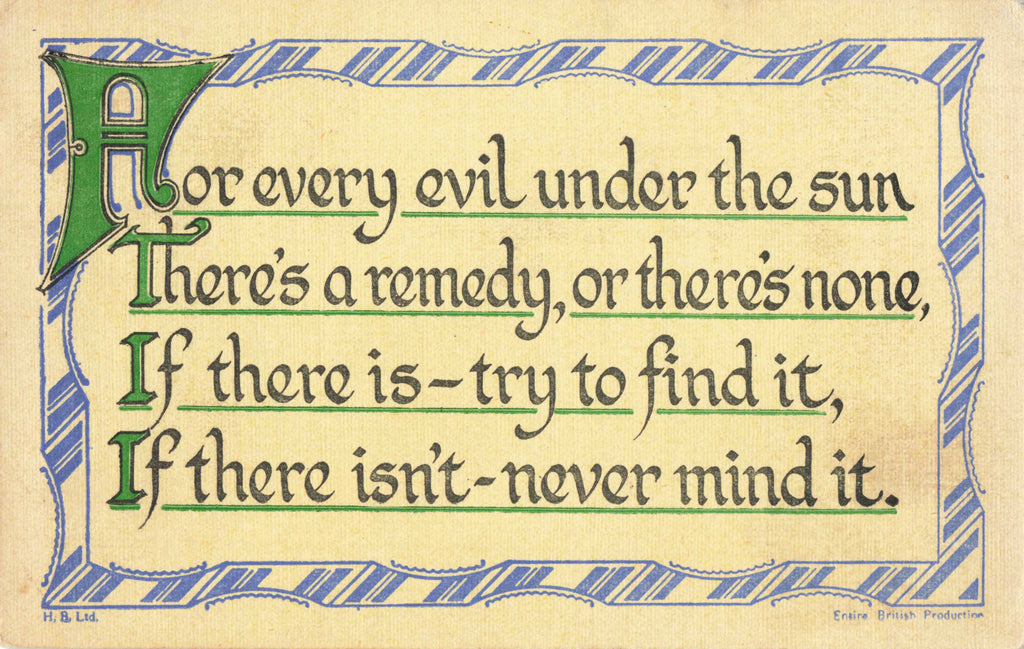 For every evil under the sun
There's a remedy, or there's none,
If there is – try to find it,
If there isn't – never mind it.
H. B. Ltd.
Entire British Production